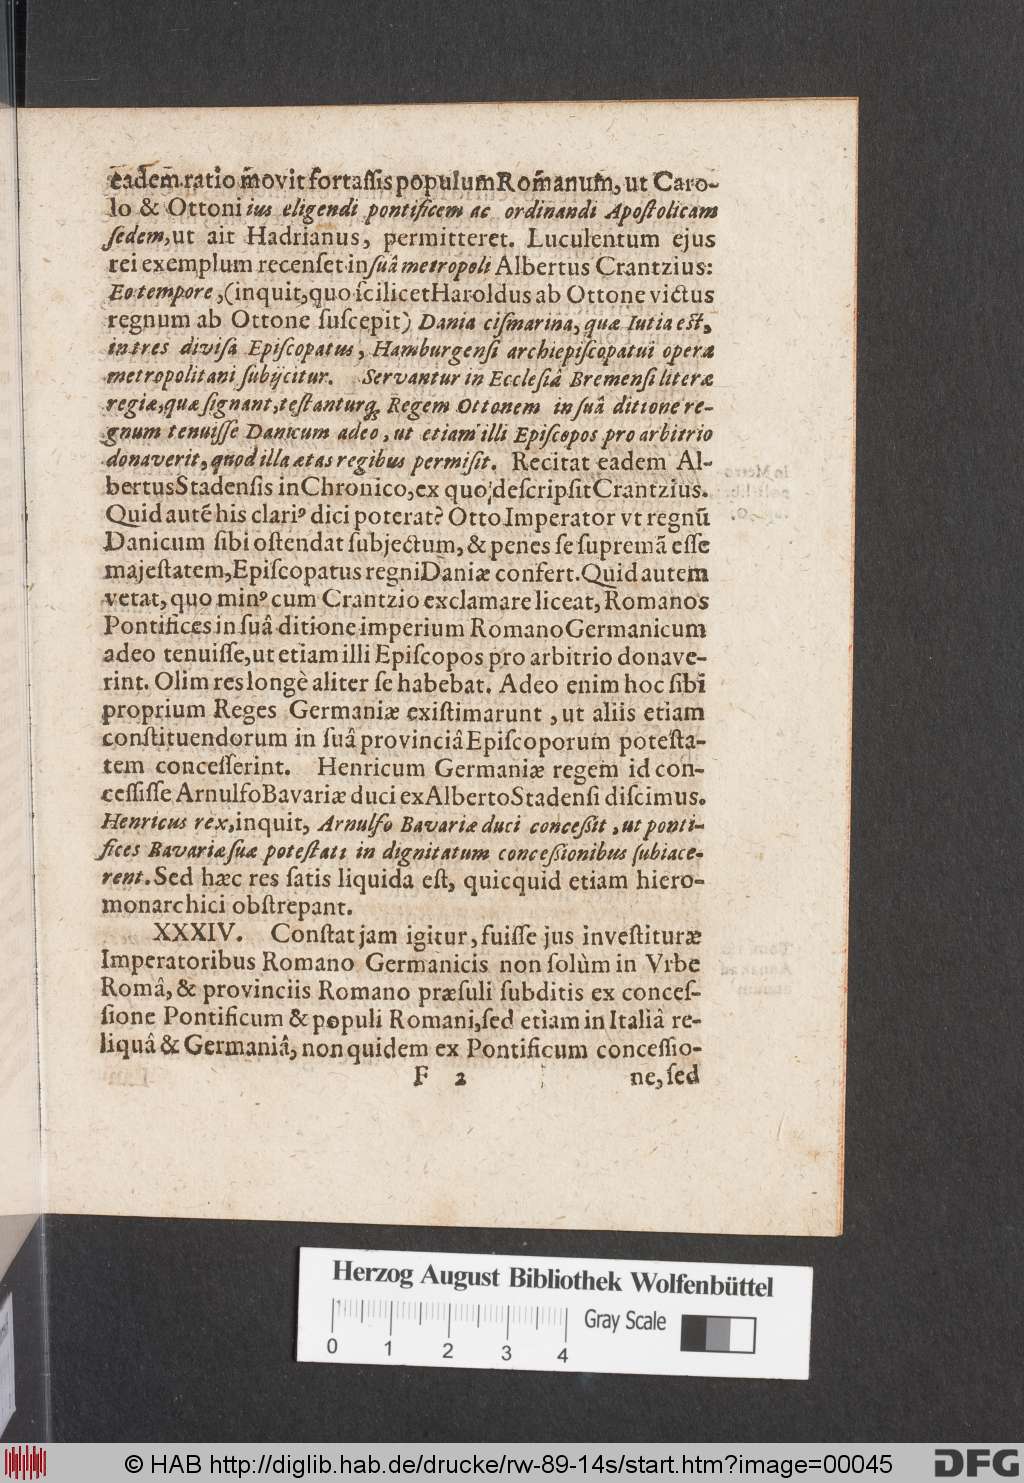 eadem ratio movit fortaſſis populum Romanum, ut Caro-
lo & Ottoni ius eligendi pontificem ac ordinandi Apoſtolicam
ſedem, ut ait Hadrianus, permitteret. Luculentum ejus
rei exemplum recenſet in ſuâ metropoli Albertus Crantzius:
Eo tempore, (inquit, quo ſcilicet Haroldus ab Ottone victus
regnum ab Ottone ſuſcepit) Dania ciſmarina, quæ Iutia eſt,
in tres diviſa Epiſcopatus, Hamburgenſi archiepiſcopatui operæ
metropolitani ſubijcitur. Servantur in Eccleſiâ Bremenſi literæ
regiæ, quæ ſignant, teſtanturq; Regem Ottonem in ſuâ ditione re-
gnum tenuiſſe Danicum adeo, ut etiam illi Epiſcopos pro arbitrio
donaverit, quod illa ætas regibus permiſit. Recitat eadem Al-
bertus Stadenſis in Chronico, ex quo deſcripſit Crantzius.
Quid autē his clariꝰ dici poterat? Otto Imperator vt regnū
Danicum ſibi oſtendat ſubjectum, & penes ſe ſupremā eſſe
majeſtatem, Epiſcopatus regni Daniæ confert. Quid autem
vetat, quo minꝰ cum Crantzio exclamare liceat, Romanos
Pontifices in ſuâ ditione imperium Romano Germanicum
adeo tenuiſſe, ut etiam illi Epiſcopos pro arbitrio donave-
rint. Olim res longè aliter ſe habebat. Adeo enim hoc ſibi
proprium Reges Germaniæ exiſtimarunt, ut aliis etiam
conſtituendorum in ſuâ provinciâ Epiſcoporum poteſta-
tem conceſſerint. Henricum Germaniæ regem id con-
ceſſiſſe Arnulfo Bavariæ duci ex Alberto Stadenſi diſcimus.
Henricus rex, inquit, Arnulfo Bavariæ duci conceßit, ut ponti-
fices Bavariæ ſuæ poteſtati in dignitatum conceßionibus ſubiace-
rent. Sed hæc res ſatis liquida eſt, quicquid etiam hiero-
monarchici obſtrepant.
XXXIV. Conſtat jam igitur, fuiſſe jus inveſtituræ
Imperatoribus Romano Germanicis non ſolùm in Vrbe
Româ, & provinciis Romano præſuli ſubditis ex conceſ-
ſione Pontificum & populi Romani, ſed etiam in Italiâ re-
liquâ & Germaniâ, non quidem ex Pontificum conceſſio-
F 2 ne, ſed
Herzog August Bibliothek Wolfenbüttel
Gray Scale
0 1 2 3 4
© HAB http://diglib.hab.de/drucke/rw-89-14s/start.htm?image=00045
DFG